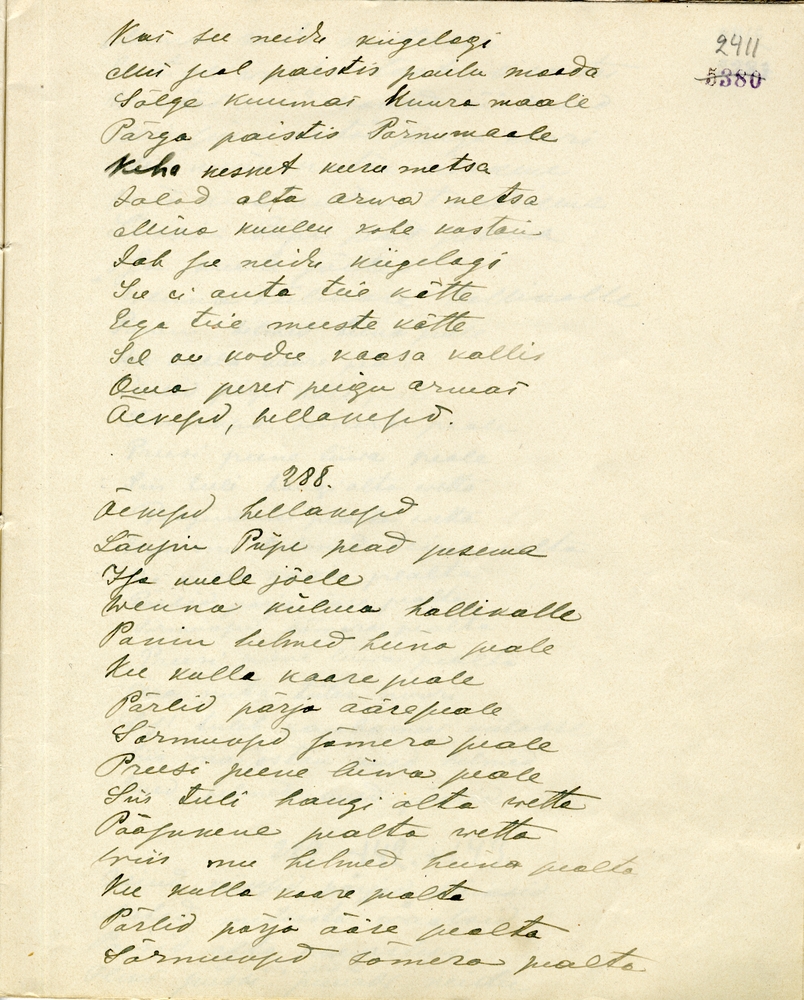 2411
5380
Kus see neidu kiigelagi
Mis seal paistis paelu maada
Sõlge kuumas Kuura maale
Pärga paistis Pärnumaale
Keha keskelt kuru metsa
Jalad alta arwa metsa
Mina kuulen kohe kostan
Jah see neidu kiigelagi
See ei anta teie kätte
Ega teie meeste kätte
Sel on kodu kaasa kallis
Oma peres peigu armas
Õekesed, hellakesed.
288.
Õekesed hellakesed
Läksin Piipe pead pesema
Isa uuele jõele
Wenna külma hallikalle
Panin helmed heina peale
Kee kulla kaare peale
Pärlid pärja äärepeale
Sõrmuksed sõmera peale
Preesi peene liiwa peale
Siis tuli haugi alta wette
Pääsukene pealta wetta
Wiis mu helmed heina pealta
Kee kulla kaare pealta
Pärlid pärja ääre pealta
Sõrmuksed sõmera pealta